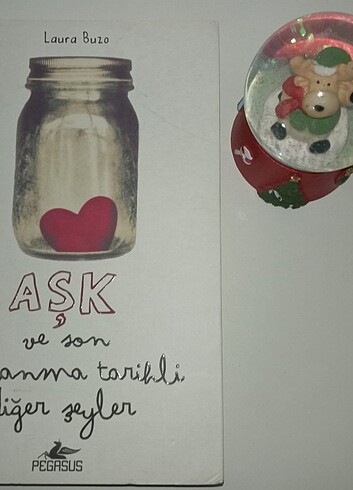 Laura Buzo
AŞK
ve son
anma tarihli
diğer şeyler
PEGASUS